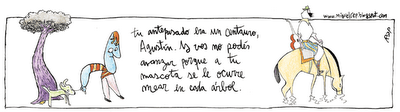 www.miguelrep.blogspot.com
tu antepasado era un centauro,
Agustín. Y vos no podés
avanzar porque a tu
mascota se le ocurre
mear en cada árbol.